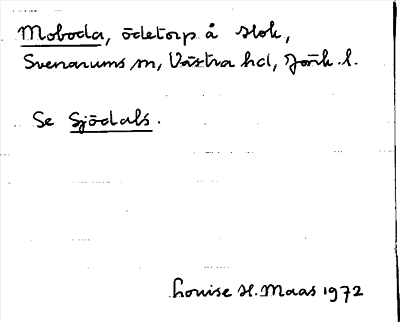 Moboda, ödetorp å Hok,
Svenarums sn, Västra hd, Jönk. l.
Se Sjödals.
Louise H. Maas 1972